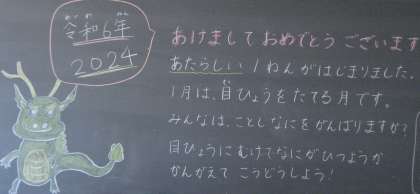 令和6年
2024
あけまして おめでとう ございます
あたらしい 1ねんがはじまりました。
1月は、目ひょうをたてる月です。
みんなは、ことしなにをがんばりますか?
目ひょうにむけてなにがひつようか
かんがえて こうどうしよう!